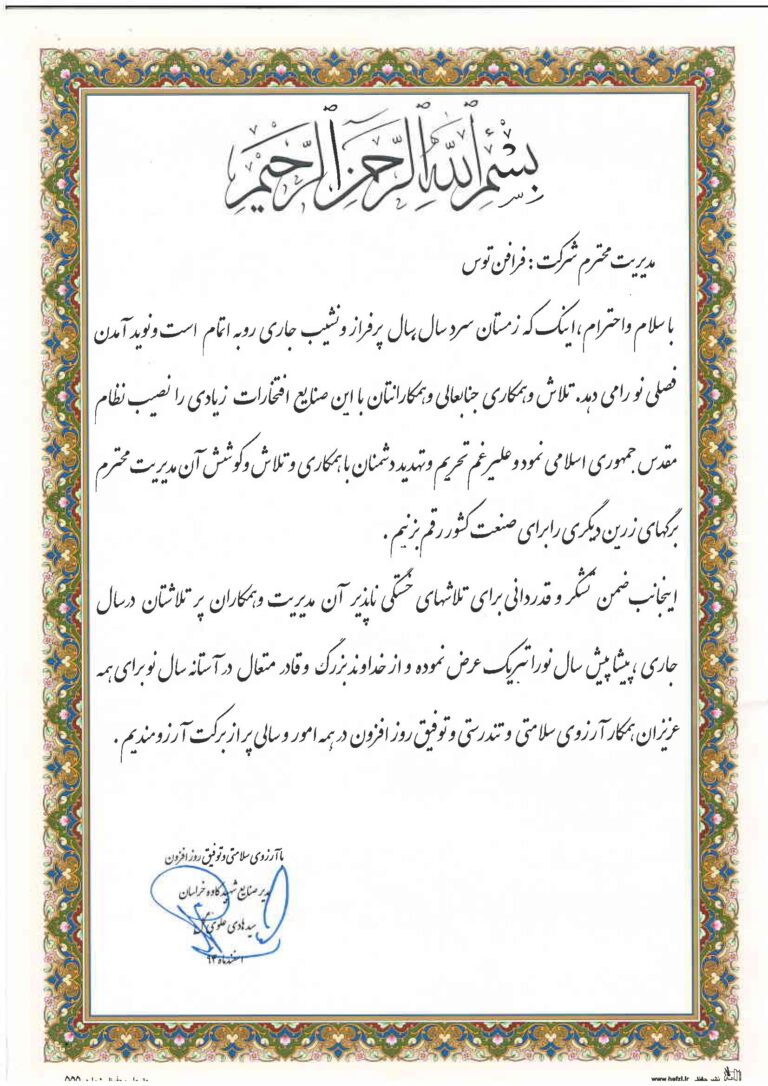 بسم الله الرحمن الرحیم
مدیریت محترم شرکت : فرافن توس
با سلام و احترام ، اینک که زمستان سرد سال بسال پرفراز و نشیب جاری رو به اتمام است و نوید آمدن
فصلی نو را می دهد. تلاش و همکاری جنابعالی و همکارانتان با این صنایع افتخارات زیادی را نصیب نظام
مقدس جمهوری اسلامی نمود و علیرغم تحریم و تهدید دشمنان با همکاری و تلاش و کوشش آن مدیریت محترم
برگهای زرین دیگری را برای صنعت کشور رقم بزنیم .
اینجانب ضمن تشکر و قدردانی برای تلاشهای خستگی ناپذیر آن مدیریت و همکاران پر تلاشتان در سال
جاری ، پیشاپیش سال نو را تبریک عرض نموده و از خداوند بزرگ و قادر متعال در آستانه سال نو برای همه
عزیزان همکار آرزوی سلامتی و تندرستی و توفیق روز افزون در همه امور و سالی پر از برکت آرزومندیم .
با آرزوی سلامتی و توفیق روز افزون
مدیر صنایع شهید کاوه خراسان
سید هادی علوی
اسفند ماه ۹۳
www.hafzi.ir
۵۵۵